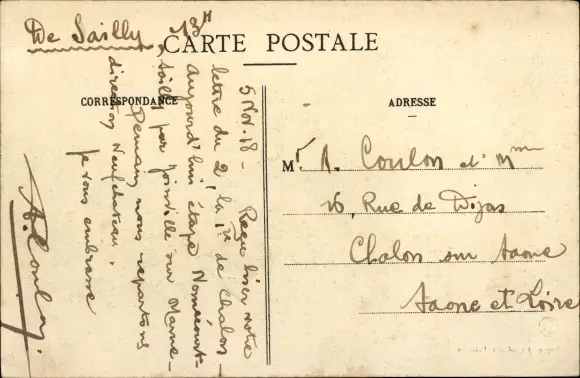 De Sailly, 13H
CARTE POSTALE
CORRESPONDANCE
ADRESSE
5 Nov. 18 - Reçu hier votre
lettre du 2, la 1re de Chalon -
Aujourd'hui étape Nomécourt-
Sailly par Joinville sur Marne -
Demain nous repartons
direction Neufchateau.
Je vous embrasse
A. Coulon.
Mr A. Coulon et Mme
16, Rue de Dijon
Chalon sur Saone
Saone et Loire